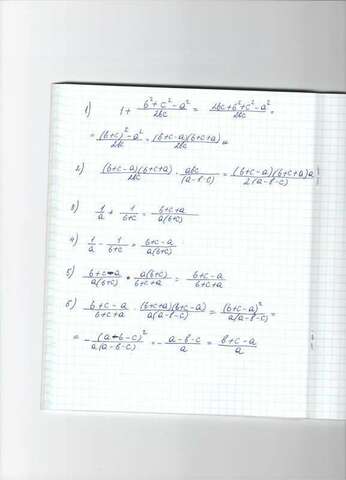 1) 1 + (b²+c²-a²)/2bc = (2bc+b²+c²-a²)/2bc =
= ((b+c)²-a²)/2bc = (b+c-a)(b+c+a)/2bc =
2) (b+c-a)(b+c+a)/2bc · abc/(a-b-c) = (b+c-a)(b+c+a)a/2(a-b-c)
3) 1/a + 1/(b+c) = (b+c+a)/a(b+c)
4) 1/a - 1/(b+c) = (b+c-a)/a(b+c)
5) (b+c-a)/a(b+c) · a(b+c)/(b+c+a) = (b+c-a)/(b+c+a)
6) (b+c-a)/(b+c+a) · (b+c+a)(b+c-a)/a(a-b-c) = (b+c-a)²/a(a-b-c) =
= -(a-b-c)²/a(a-b-c) = -(a-b-c)/a = (b+c-a)/a